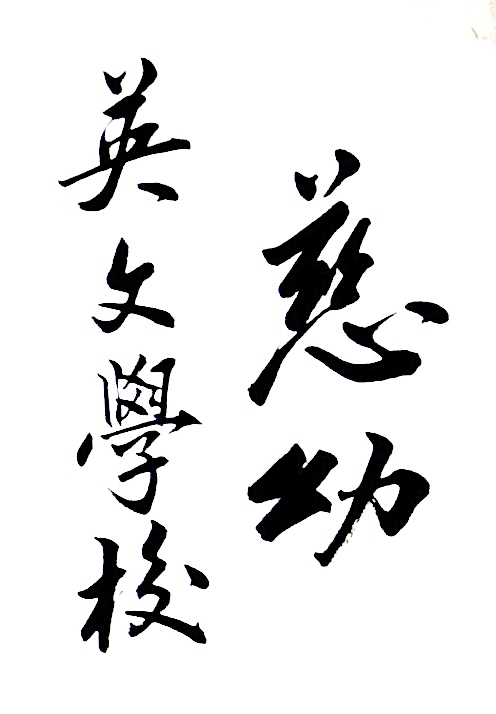 慈幼
英文學校